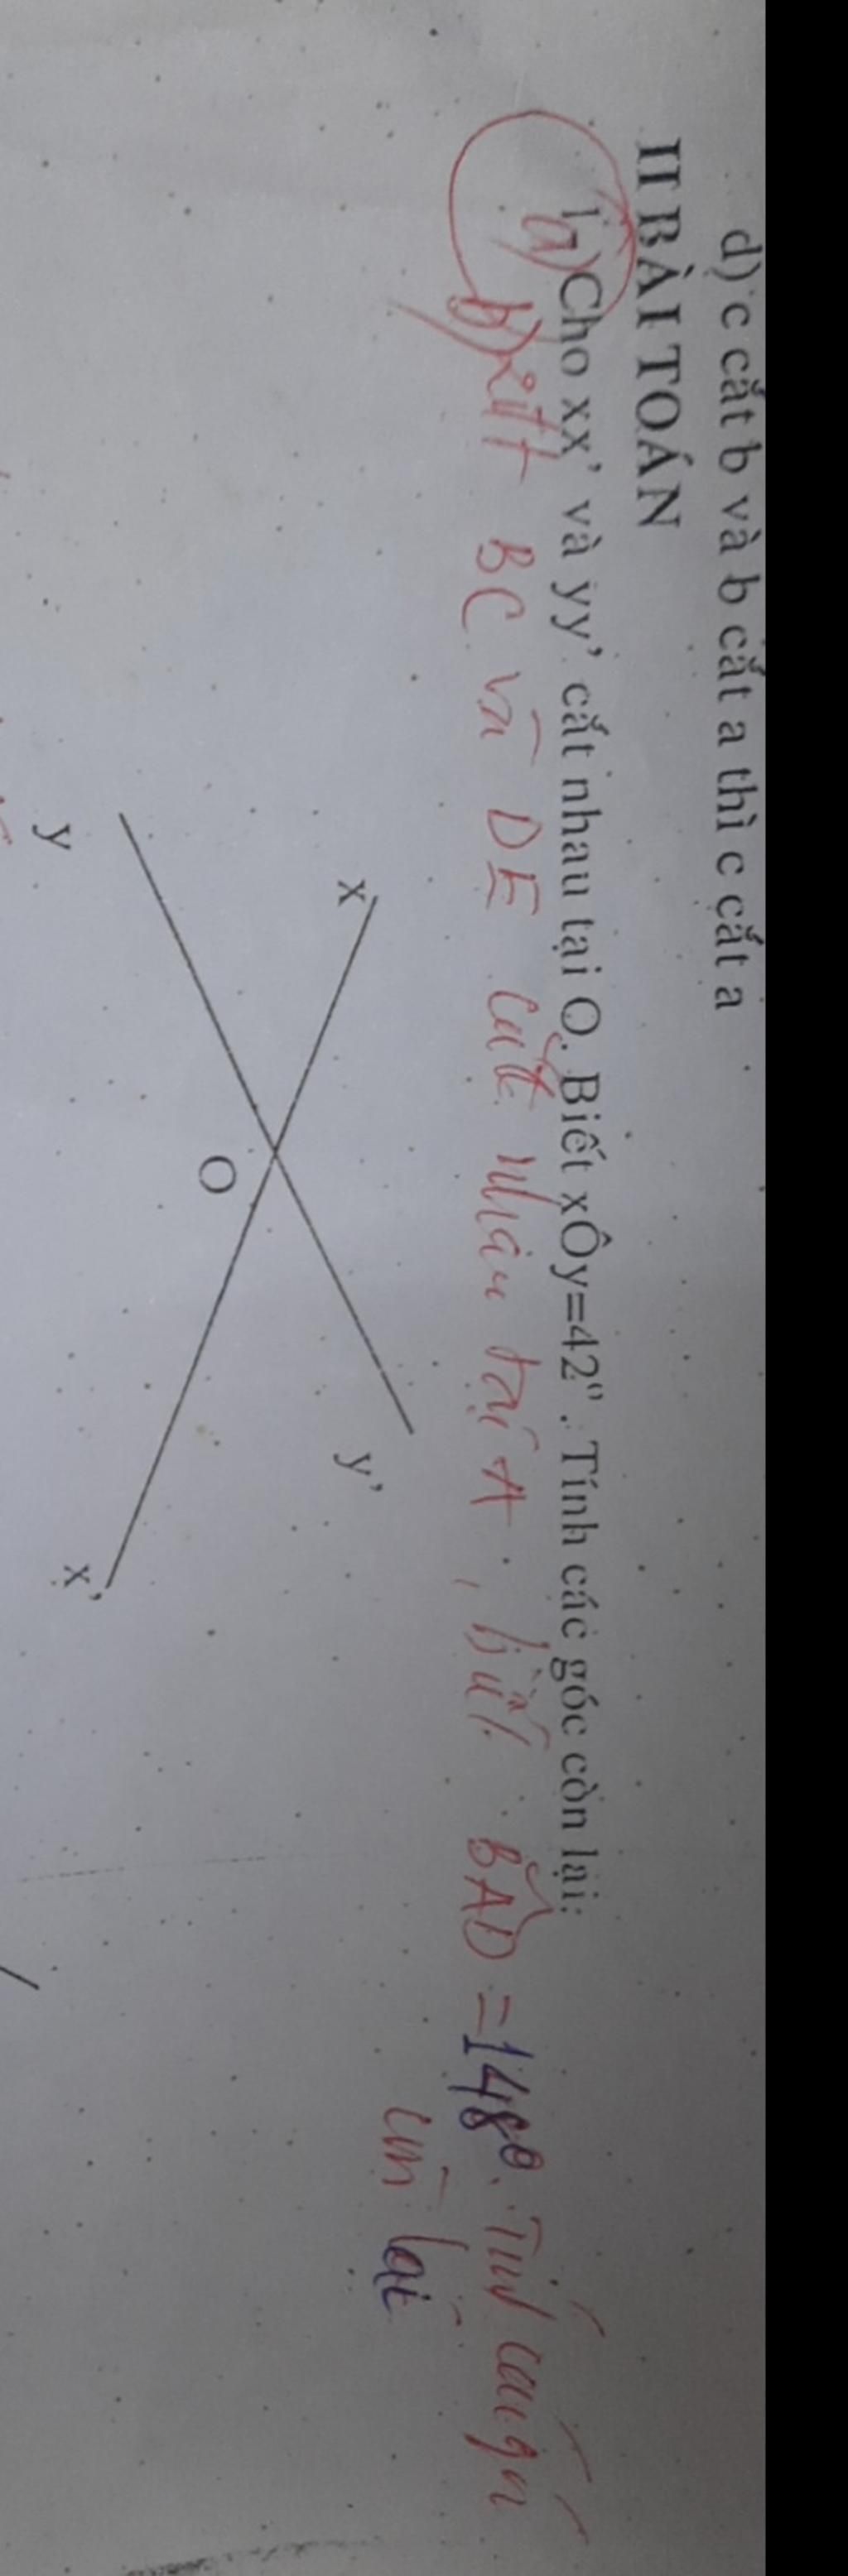 d) c cắt b và b cắt a thì c cắt a
II BÀI TOÁN
1-)Cho xx’ và yy’ cắt nhau tại O. Biết xÔy=42⁰ . Tính các góc còn lại:
a)
b) BC và DE cắt nhau tại A , biết BÂD = 148⁰. Tính các góc
còn lại
x
y’
O
y
x’